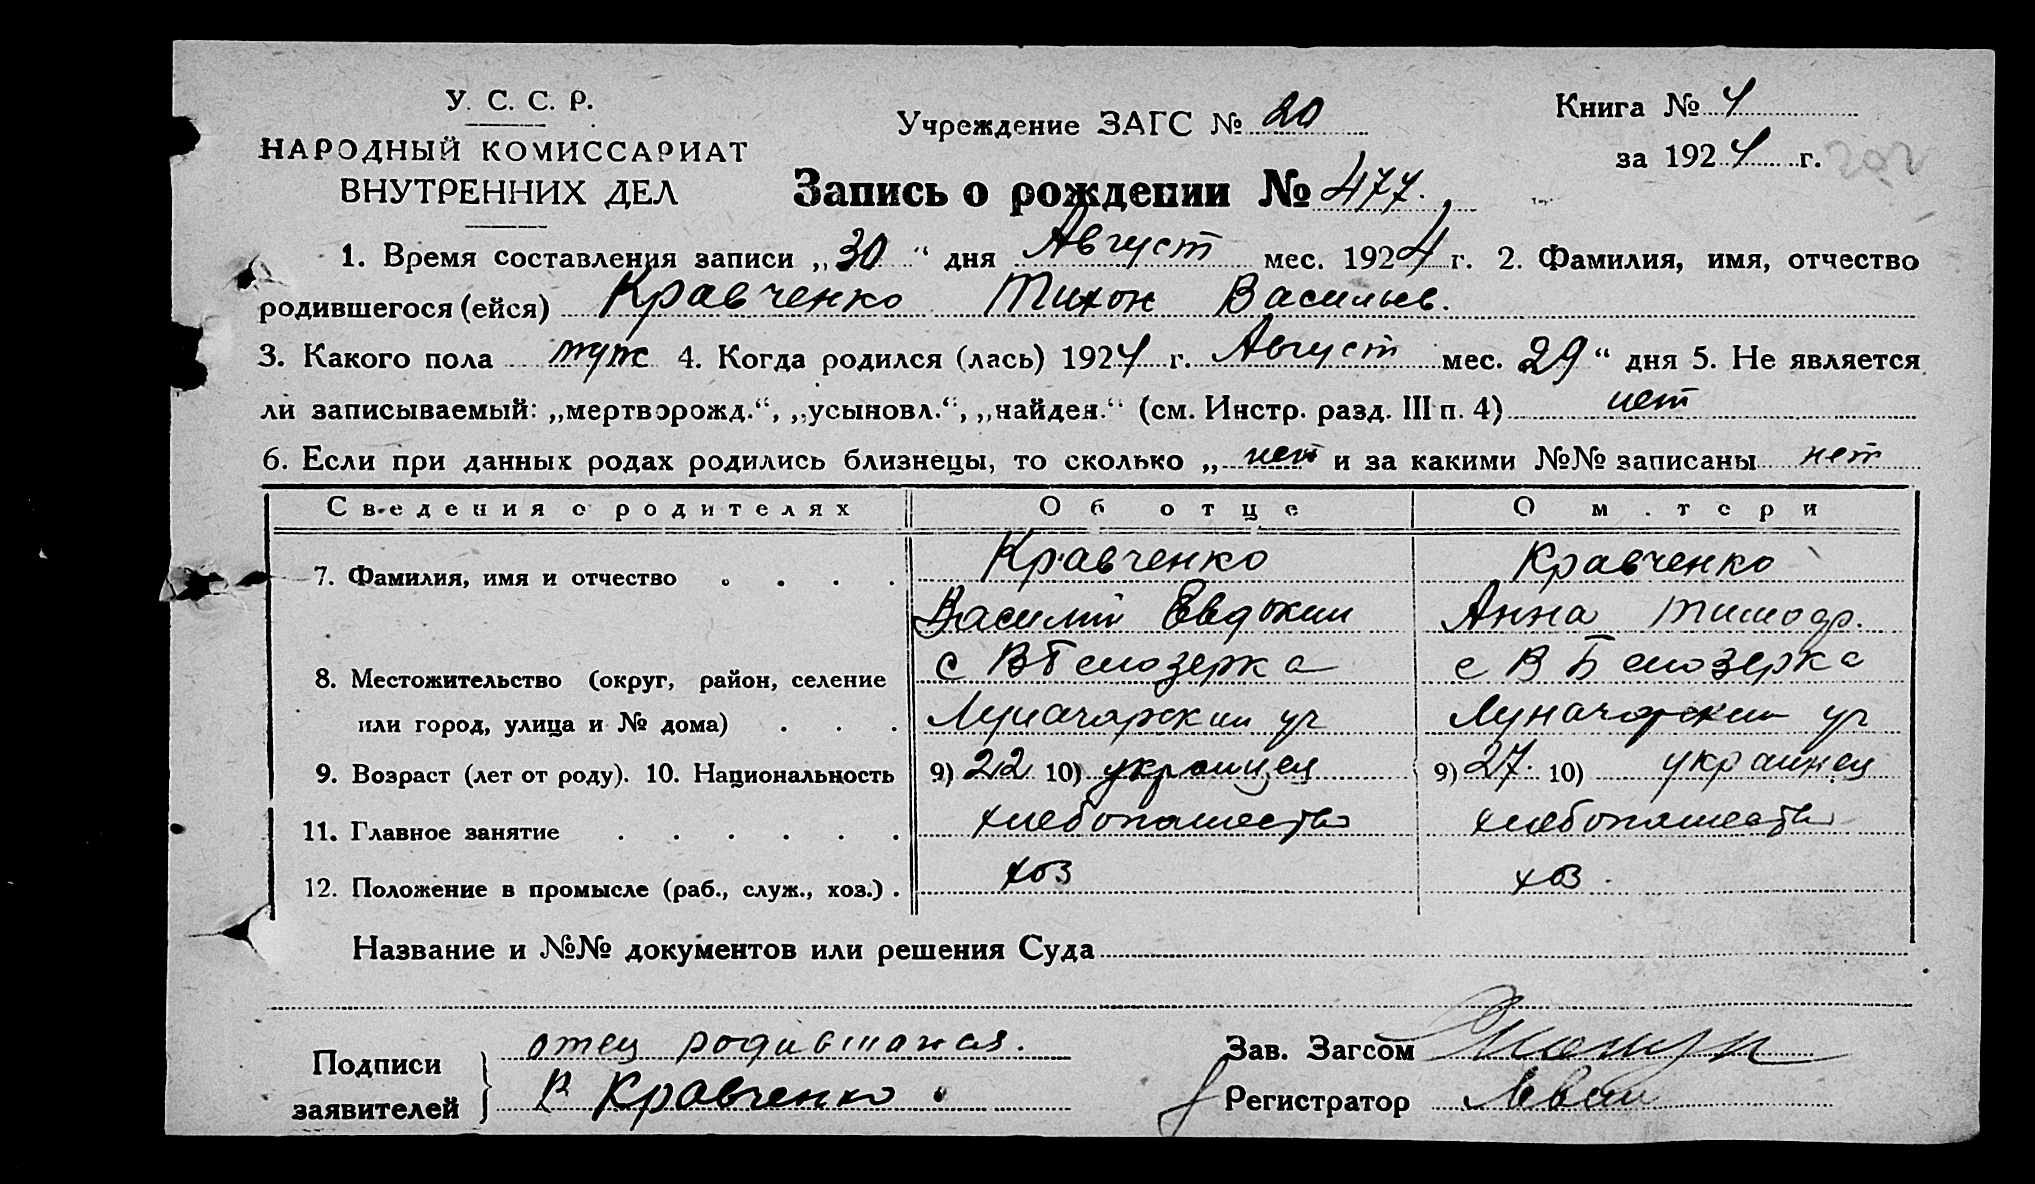 У. С. С. Р.
НАРОДНЫЙ КОМИССАРИАТ
ВНУТРЕННИХ ДЕЛ
Учреждение ЗАГС № 20
Книга № 4
за 1924 г. 202
Запись о рождении № 477.
1. Время составления записи „30“ дня Август мес. 1924 г. 2. Фамилия, имя, отчество
родившегося (ейся) Кравченко Тихон Васильев.
3. Какого пола муж 4. Когда родился (лась) 1924 г. Август мес. 29“ дня 5. Не является
ли записываемый: „мертворожд.“, „усыновл.“, „найден.“ (см. Инстр. разд. III п. 4) нет
6. Если при данных родах родились близнецы, то сколько „ нет и за какими №№ записаны нет
Сведения о родителях Об отце О м.тери
7. Фамилия, имя и отчество . . . . Кравченко Кравченко
Василий Евдоким Анна
8. Местожительство (округ, район, селение с В Белозерка с В Белозерка
или город, улица и № дома) . . . Луначарский ул Луначарский ул
9. Возраст (лет от роду). 10. Национальность 9) 22 10) украинец 9) 27. 10) украинец
11. Главное занятие . . . . . . хлебопашество хлебопашество
12. Положение в промысле (раб., служ., хоз.) . хоз хоз.
Название и №№ документов или решения Суда
Подписи заявителей } отец
В Кравченко
Зав. Загсом
Регистратор